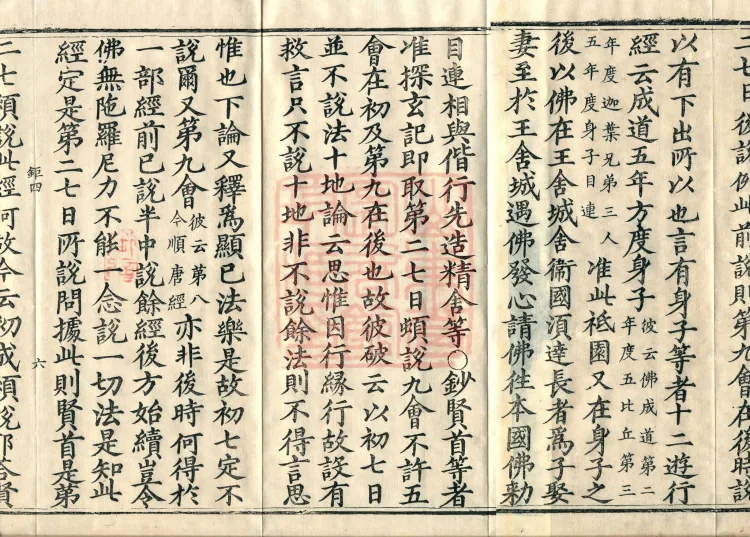 二七日後說例此前說則第九會在後時說
以有下出所以也言有身子等者十二遊行
經云成道五年方度身子彼云佛成道第二年度五比丘第三
年度迦葉兄弟三人五年度身子目連准此祇園又在身子之
後以佛在王舍城舍衞國湏達長者爲子娶
妻至於王舍城遇佛發心請佛往本國佛勑
目連相與偕行先造精舍等○鈔賢首等者
准探玄記即取第二七日頓說九會不許五
會在初及第九在後也故彼破云以初七日
並不說法十地論云思惟因行緣行故設有
救言只不說十地非不說餘法則不得言思
惟也下論又釋爲顯已法樂是故初七定不
說爾又第九會彼云第八今順唐經亦非後時何得於
一部經前已說半中說餘經後方始續豈令
佛無陁羅尼力不能一念說一切法是知此
經定是第二七日所說問據此則賢首是第
鉅四
六
二七頓說此經何故今云初成頓說耶答賢